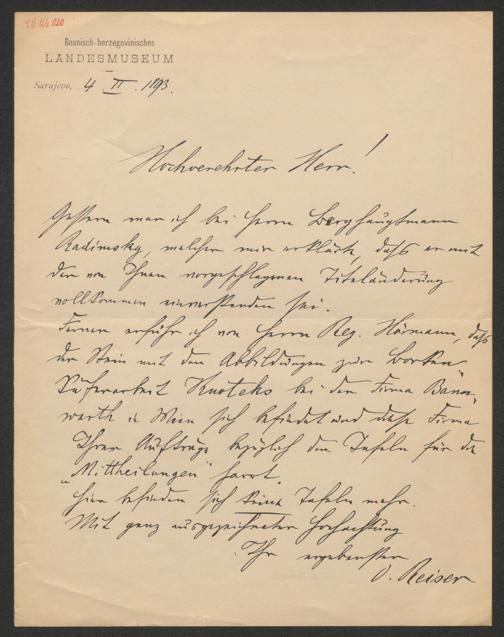 Bosnisch-herzegovinisches
LANDESMUSEUM
Sarajevo, 4. II. 1893.
Hochverehrter Herr!
Gestern war ich bei Herrn Berghauptmann
Radimsky, welcher mir erklärte, daß er mit
der von Ihnen vorgeschlagenen Titeländerung
vollkommen einverstanden sei.
Ferner erfuhr ich von Herrn Reg. Hörmann, daß
der Stein mit den Abbildungen zur Borken-
käferarbeit Knoteks bei der Firma Bann-
warth in Wien sich befindet und diese Firma
Ihrer Aufträge bezüglich der Tafeln für die
„Mittheilungen" harrt.
Hier befinden sich keine Tafeln mehr.
Mit ganz ausgezeichneter Hochachtung
Ihr ergebenster
O. Reiser